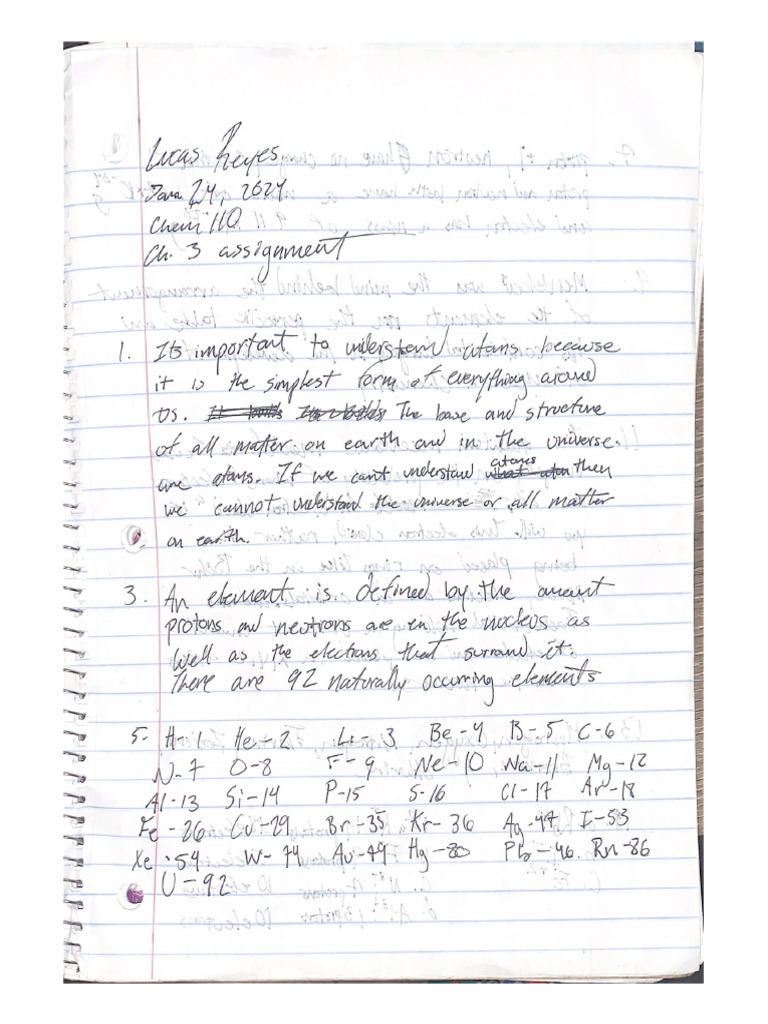 Lucas Reyes
Jan 24, 2024
Chem 110
Ch. 3 assignment
1. Its important to understand atoms because
it is the simplest form of everything around
us. The base and structure
of all matter on earth and in the universe.
are atoms. If we can't understand atoms then
we cannot understand the universe or all matter
on earth.
3. An element is defined by the amount
protons and neutrons are in the nucleus as
well as the electrons that surround it.
There are 92 naturally occurring elements
5- H-1 He-2 Li-3 Be-4 B-5 C-6
N-7 O-8 F-9 Ne-10 Na-11 Mg-12
Al-13 Si-14 P-15 S-16 Cl-17 Ar-18
Fe-26 Cu-29 Br-35 Kr-36 Ag-47 I-53
Xe-54 W-74 Au-49 Hg-80 Pb-46 Rn-86
U-92